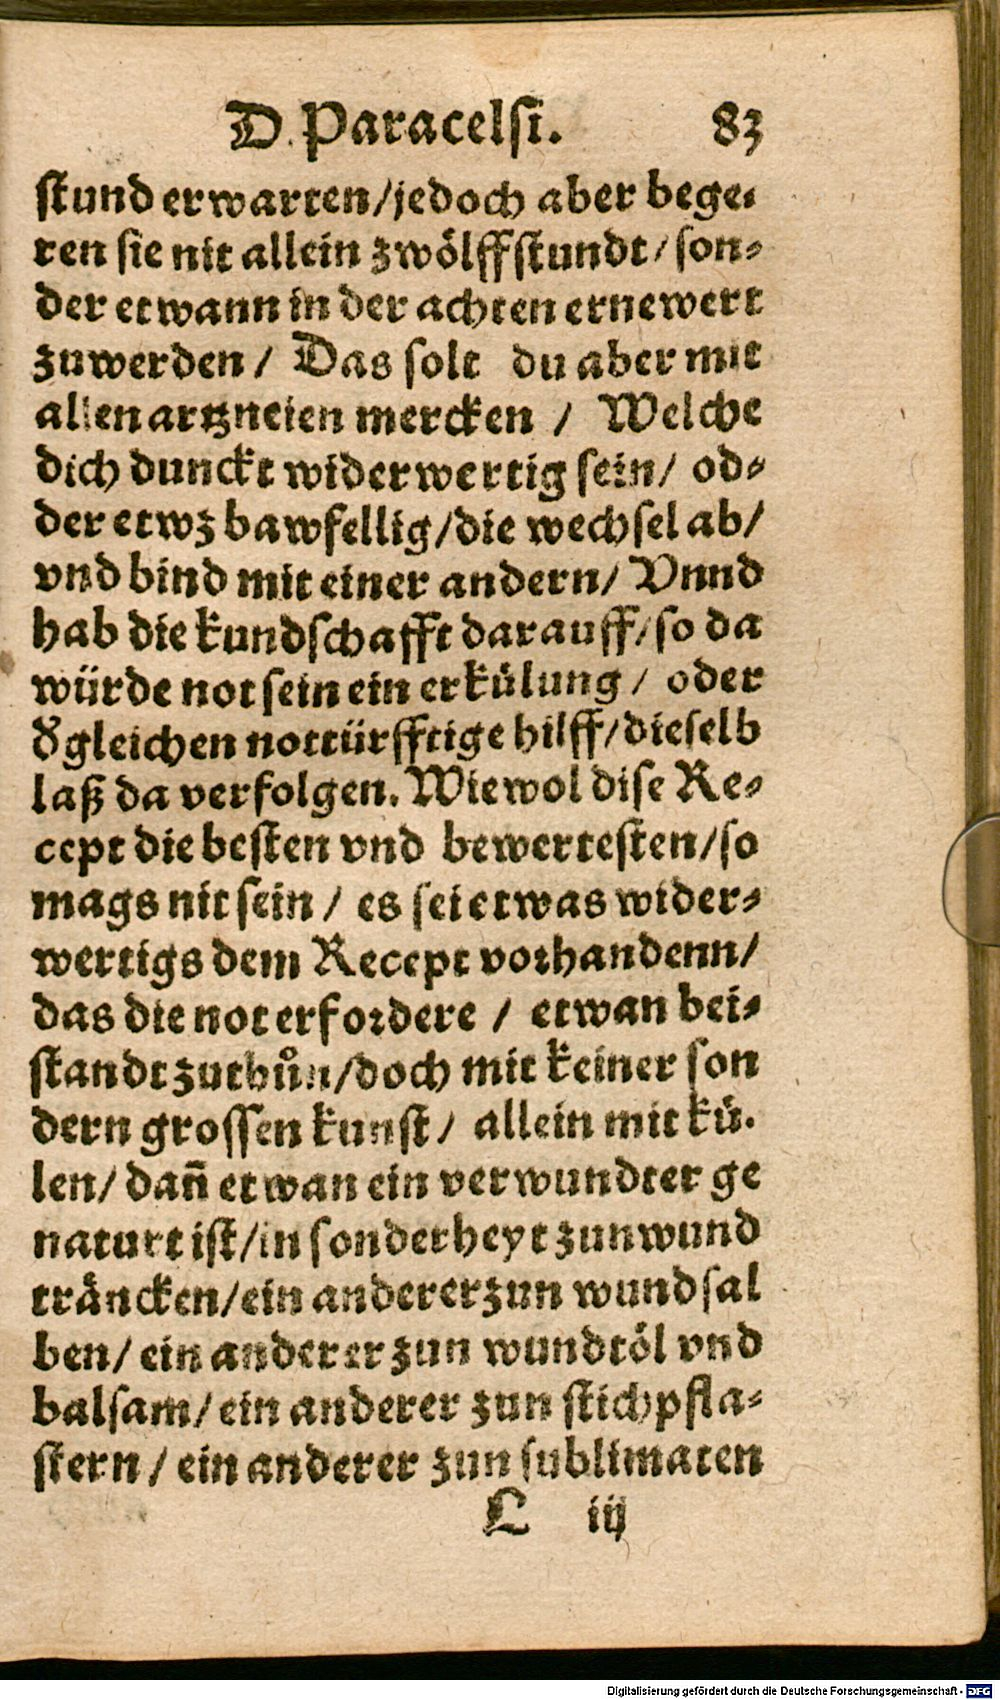 D. Paracelsi. 83
stund erwarten/jedoch aber bege-
ren sie nit allein zwölffstundt/son-
der etwann in der achten ernewert
zuwerden/ Das solt du aber mit
allen artzneien mercken / Welche
dich dunckt widerwertig sein/ od-
der etwz bawfellig/die wechsel ab/
vnd bind mit einer andern/ Vnnd
hab die kundschafft darauff/so da
würde not sein ein erkülung/ oder
dʼgleichen nottürfftige hilff/dieselb
laß da verfolgen. Wiewol dise Re-
cept die besten vnd bewertesten/so
mags nit sein / es sei etwas wider-
wertigs dem Recept vorhandenn/
das die not erfordere / etwan bei-
standt zuthůn/doch mit keiner son
dern grossen kunst/ allein mit kü.
len/ dañ etwan ein verwundter ge
naturt ist/in sonderheyt zun wund
träncken/ein anderer zun wundsal
ben/ ein anderer zun wundtöl vnd
balsam/ein anderer zun stichpfla-
stern/ein anderer zun sublimaten
L iij
Digitalisierung gefördert durch die Deutsche Forschungsgemeinschaft - DFG